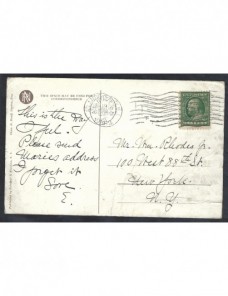 THIS SPACE MAY BE USED FOR
CORRESPONDENCE
This is the way
I feel.
Please send
Maries address
I forget it
Love
E.
Mr. Wm. Rhodes Jr.
100 West 88th St.
New York
N. Y.